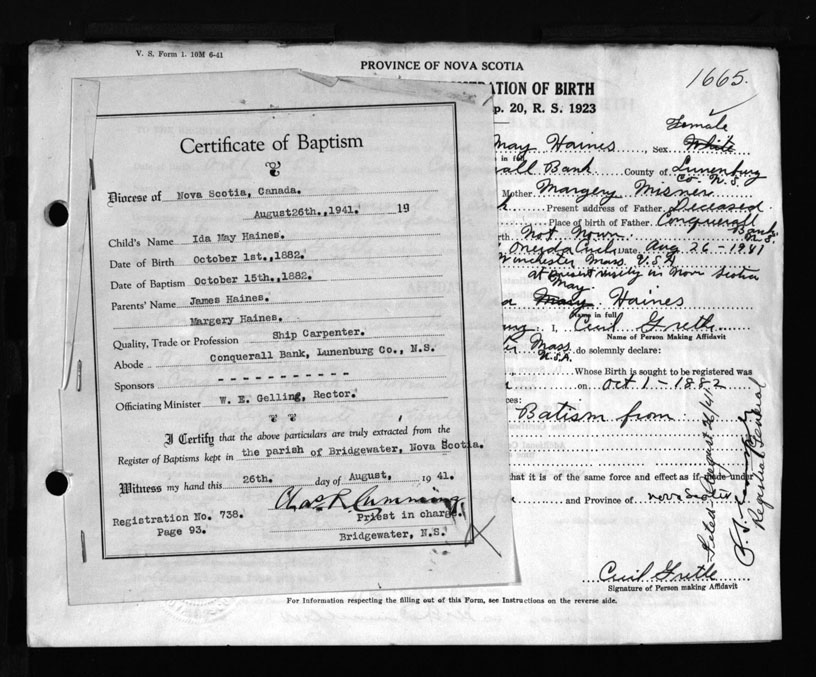 V. S. Form 1. 10M 6-41
PROVINCE OF NOVA SCOTIA
1665.
TRATION OF BIRTH
p. 20, R. S. 1923
Certificate of Baptism
Diocese of Nova Scotia, Canada.
August26th.,1941. 19
Child's Name Ida May Haines.
Date of Birth October 1st.,1882.
Date of Baptism October 15th.,1882.
Parents' Name James Haines.
Margery Haines.
Quality, Trade or Profession Ship Carpenter.
Abode Conquerall Bank, Lunenburg Co., N.S.
Sponsors - - - - - - - - - -
Officiating Minister W. E. Gelling, Rector.
I Certify that the above particulars are truly extracted from the
Register of Baptisms kept in the parish of Bridgewater, Nova Scotia.
Witness my hand this 26th. day of August, 19 41.
Chas R Cumming
Registration No. 738. Priest in charge.
Page 93. Bridgewater, N.S.
Female
May Haines, Sex White
in full
all Bank County of Lunenburg
Co. N.S.
Mother Margery Misner
Present address of Father Deceased
Place of birth of Father Conquerall
Bank N.S.
Not Nown
Date Aug 26 - 1941
Winchester Mass. U.S.A
at present in Nova Scotia
May
Mary Haines
Name in full
I, Cecil Gretle
Name of Person Making Affidavit
Mass
U.S.A. do solemnly declare:
Whose Birth is sought to be registered was
on Oct 1 - 1882
ces:
Batism from
that it is of the same force and effect as if made under
and Province of Nova Scotia
Filed August 26/41
Registrar General
Cecil Gretle
Signature of Person making Affidavit
For Information respecting the filling out of this Form, see Instructions on the reverse side.